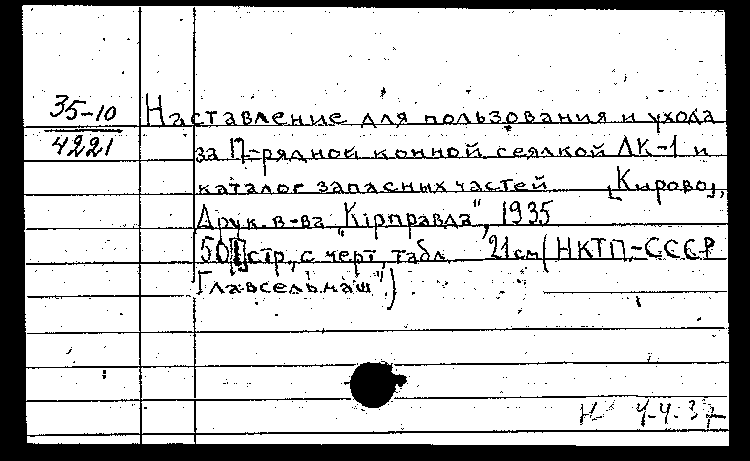 35-10
4221
Наставление для пользования и ухода
за 11-рядной конной сеялкой ЛК-1 и
каталог запасных частей [Кирово],
Друк. в-ва "Кірправда", 1935
50 стр., с черт., табл. 21 см (НКТП-СССР
Главсельмаш")
4-4-37